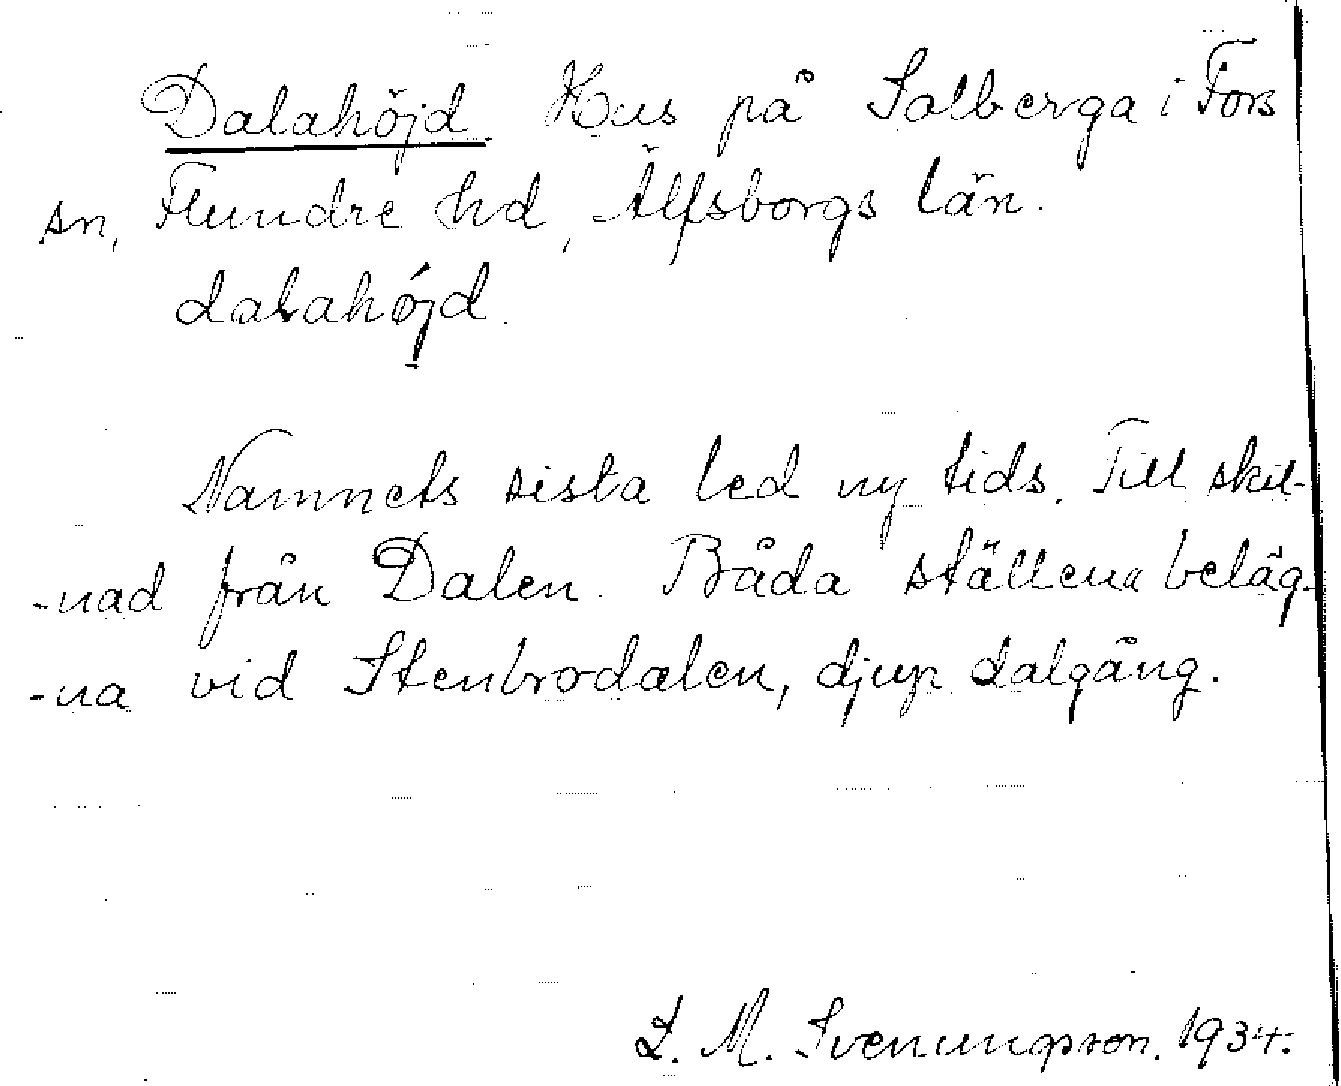 Dalahöjd. Hus på Salberga i Fors
sn, Flundre hd, Älfsborgs län.
dalahöjd.
Namnets sista led ny tids. Till skil-
-nad från Dalen. Båda ställena beläg-
-na vid Stenbrodalen, djup dalgång.
L. M. Svenungsson. 1934.